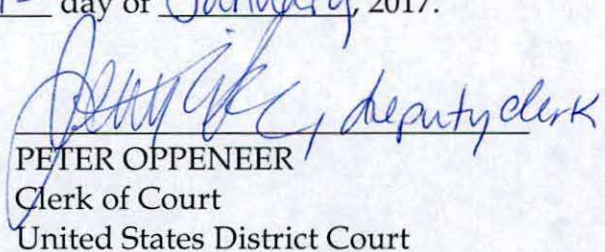 day of January, 2017.
, deputy clerk
PETER OPPENEER
Clerk of Court
United States District Court